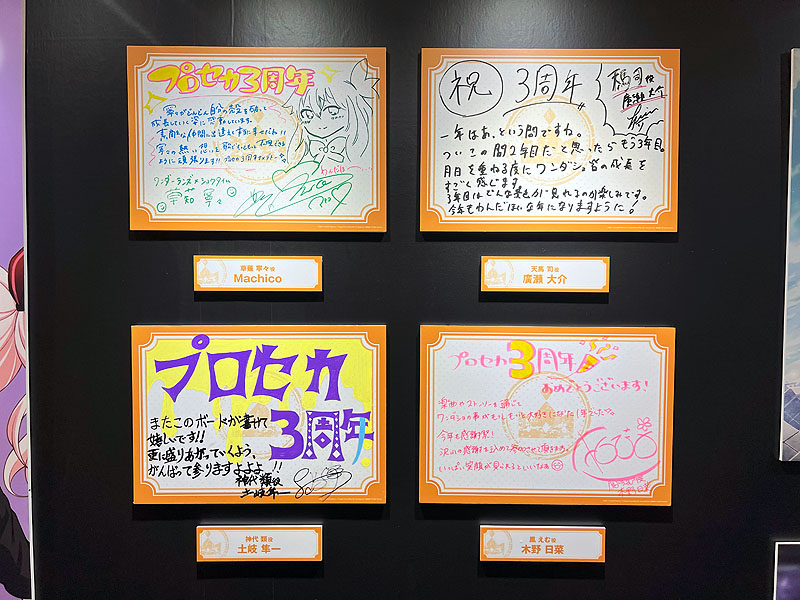 プロセカ3周年
寧々がどんどん自分の殻を破って
成長していく姿に感動しています。
素敵な仲間に出逢えて本当に幸せだね!!
ように頑張ります!!
ワンダーランズ×ショウタイム
草薙 寧々
わんだほーい
草薙 寧々役
Machico
祝 3周年
天馬司役
廣瀬大介
一年はあっという間ですね。
ついこの間2年目だと思ったらもう3年目。
月日を重ねる度にワンダショ皆の成長を
すごく感じます。
3年目はどんな景色が見れるのか楽しみです。
今年もわんだほいな年になりますように!
天馬 司役
廣瀬 大介
プロセカ
3周年
またこのボードが書けて
嬉しいです!!
更に盛りあがっていくよう、
がんばって参りますよよよ!!
神代類役
土岐隼一
神代 類役
土岐 隼一
プロセカ3周年
おめでとうございます!
楽曲やストーリーを通じて
ワンダショの事がもっともっと大好きになった1年でした。
今年も感謝祭!
沢山の感謝を込めて
いっぱい笑顔が見られるといいなぁ
鳳えむ役
木野日菜
鳳 えむ役
木野 日菜